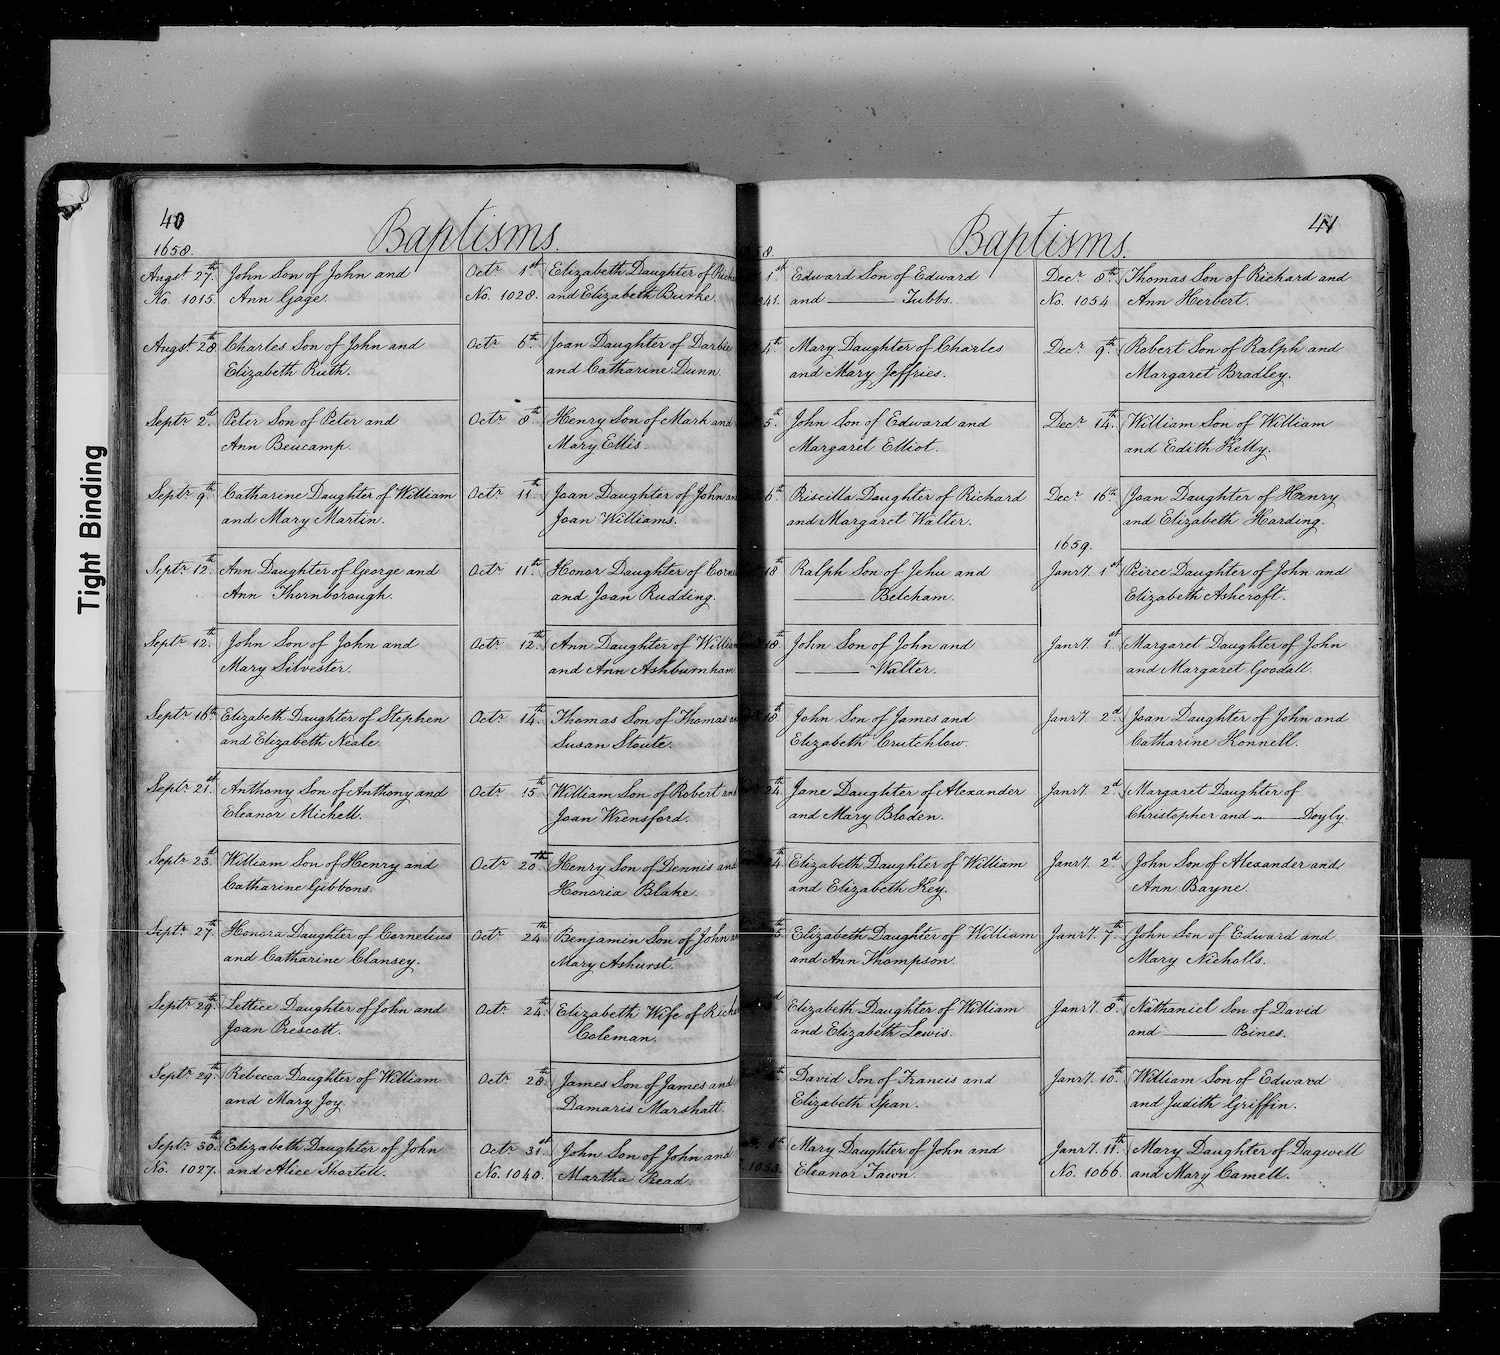 Tight Binding
40
Baptisms.
1658.
Augst 27th John Son of John and
No. 1015. Ann Gage.
Augst 28th Charles Son of John and
Elizabeth Ruth.
Septr 2d. Peter Son of Peter and
Ann Beucamp.
Septr 9th Catharine Daughter of William
and Mary Martin.
Septr 12th Ann Daughter of George and
Ann Thornborough.
Septr 12th John Son of John and
Mary Silvester.
Septr 16th Elizabeth Daughter of Stephen
and Elizabeth Neale.
Septr 21st Anthony Son of Anthony and
Eleanor Michell.
Septr 23d William Son of Henry and
Catharine Gibbons.
Septr 27th Honora Daughter of Cornelius
and Catharine Clansey.
Septr 29th Lettice Daughter of John and
Joan Prescott.
Septr 29th Rebecca Daughter of William
and Mary Joy.
Septr 30th Elizabeth Daughter of John
No. 1027. and Alice Shortell.
Octr 1st Elizabeth Daughter of
No. 1028. and Elizabeth Burke.
Octr 6th Joan Daughter of Darbie
and Catharine Dunn.
Octr 8th Henry Son of Mark and
Mary Ellis.
Octr 11th Joan Daughter of John
Joan Williams.
Octr 11th Honor Daughter of
and Joan Rudding.
Octr 12th Ann Daughter of
and Ann Ashburnham
Octr 14th Thomas Son of Thomas
Susan Stoute.
Octr 15th William Son of Robert
Joan Wrensford.
Octr 20th Henry Son of Dennis and
Honoria Blake.
Octr 24th Benjamin Son of John
Mary Ashurst.
Octr 24th Elizabeth Wife of
Coleman.
Octr 28th James Son of James and
Damaris Marshall.
Octr 31st John Son of John and
No. 1040. Martha Read.
41
Baptisms.
8.
1st Edward Son of Edward
41. and ——— Tubbs.
4th Mary Daughter of Charles
and Mary Jeffries.
5th John Son of Edward and
Margaret Elliot.
6th Priscilla Daughter of Richard
and Margaret Walter.
18th Ralph Son of Jehu and
——— Belcham.
18th John Son of John and
——— Walter.
18th John Son of James and
Elizabeth Crutchlow.
24th Jane Daughter of Alexander
and Mary Bloden.
Elizabeth Daughter of William
and Elizabeth Key.
Elizabeth Daughter of William
and Ann Thompson.
Elizabeth Daughter of William
and Elizabeth Lewis.
David Son of Francis and
Elizabeth Span.
Mary Daughter of John and
1053. Eleanor Fawn.
Decr 8th Thomas Son of Richard and
No. 1054 Ann Herbert.
Decr 9th Robert Son of Ralph and
Margaret Bradley.
Decr 14th William Son of William
and Edith Kelly.
Decr 16th Joan Daughter of Henry
and Elizabeth Harding.
1659.
Janry. 1st Peirce Daughter of John and
Elizabeth Ashcroft.
Janry. 1st Margaret Daughter of John
and Margaret Goodall.
Janry. 2d Joan Daughter of John and
Catharine Konnell.
Janry. 2d Margaret Daughter of
Christopher and ——— Doyly.
Janry. 2d John Son of Alexander and
Ann Bayne.
Janry. 7th John Son of Edward and
Mary Nicholls.
Janry. 8th Nathaniel Son of David
and ——— Poines.
Janry. 10th William Son of Edward
and Judith Griffin.
Janry. 11th Mary Daughter of Dagwell
No. 1066. and Mary Camell.